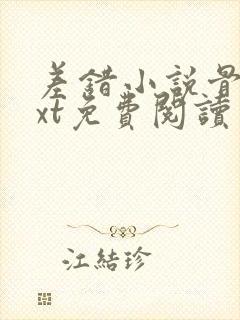 差錯小說骨
xt免費閱讀
江結珍